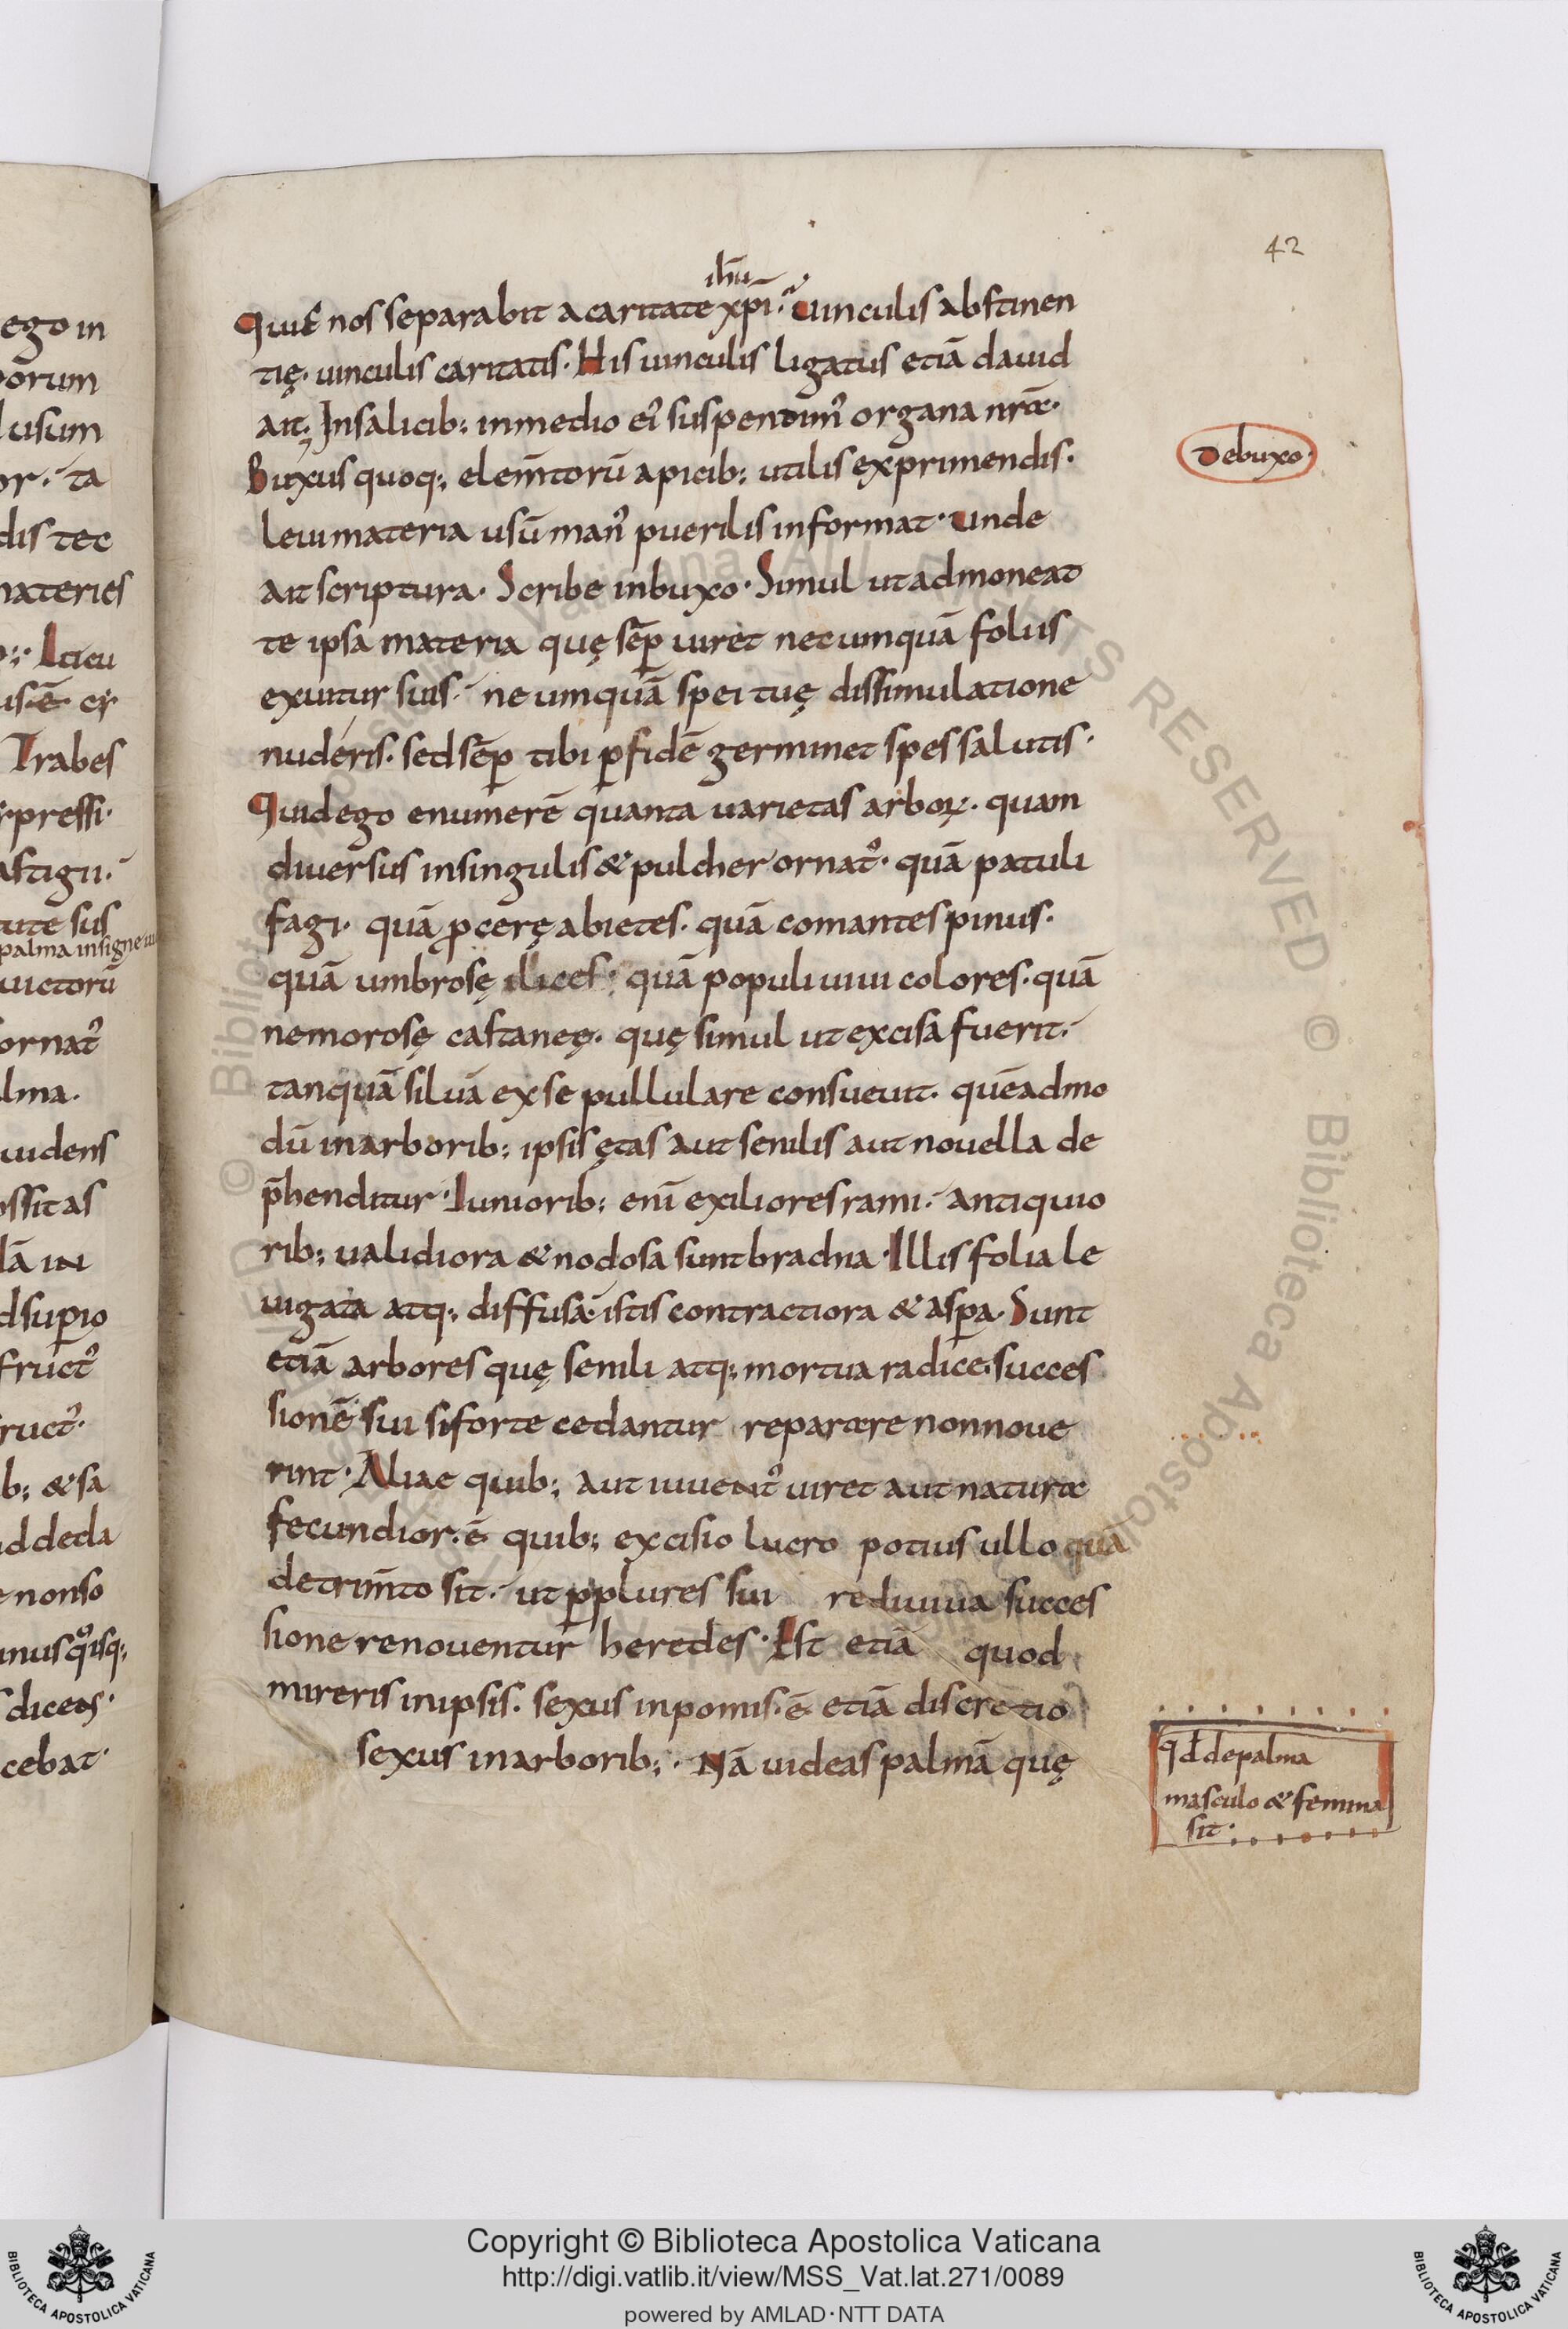 42
ihū
Quis nos separabit a caritate xp̄i· Uinculis abstinen
tię· uinculis caritatis· His uinculis ligatus etiā dauid
ait; In salicib; in medio ei᾿ suspendim᾿ organa nr̄a·
Buxus quoq; elem̄torū apicib; utilis exprimendis·
leui materia usū man᾿ puerilis informat· Unde
ait scriptura· Scribe in buxo· Simul ut admoneat
te ipsa materia quę sēp uiret nec umquā foliis
exuitur suis· ne umquā spei tuę dissimulatione
nuderis· sed sēp tibi ꝑ fidē germinet spes salutis·
Quid ego enumerē quanta uarietas arboꝝ· quam
diuersus in singulis & pulcher ornat᾿· quā patuli
fagi· quā ꝓcerę abietes· quā comantes pinus·
quā umbrosę ilices· quā populi uiui colores· quā
nemorosę castaneę· quę simul ut excisa fuerit·
tanquā siluā ex se pullulare consueuit· quēadmo
dū in arborib; ipsis ętas aut senilis aut nouella de
p̄henditur· Iuniorib; enī exiliores rami· antiquio
rib; ualidiora & nodosa sunt brachia· Illis folia le
uigata atq; diffusa· istis contractiora & asꝑa· Sunt
etiā arbores quę senili atq; mortua radice· succes
sionē sui si forte cedantur reparare non noue
rint· Aliae quib; aut iuuent᾿ uiret aut natura
fecundior· ē quib; excisio lucro potius ullo quā
detrim̄to sit· ut ꝑ plures sui rediuiua succes
sione renouentur heredes· Est etiā quod
mireris in ipsis· sexus in pomis· ē etiā discretio
sexus in arborib;· Nā uideas palmā quę
De buxo·
qd̄ de palma
masculo & femina
sit·
ego in
orum
usum
or· ta
dis tec
materies
Trabes
pressi·
astigii·
tute sus
palma insigne
uictorū
ornat᾿
lma·
uidens
ssitas
lā in
d suꝑio
fruct᾿
ruct᾿·
b; & sa
d decla
e nonso
cebat·
© Biblioteca Apostolica Vaticana ALL RIGHTS RESERVED
© Biblioteca Apostolica
Copyright © Biblioteca Apostolica Vaticana
http://digi.vatlib.it/view/MSS_Vat.lat.271/0089
powered by AMLAD·NTT DATA
BIBLIOTECA APOSTOLICA VATICANA
BIBLIOTECA APOSTOLICA VATICANA